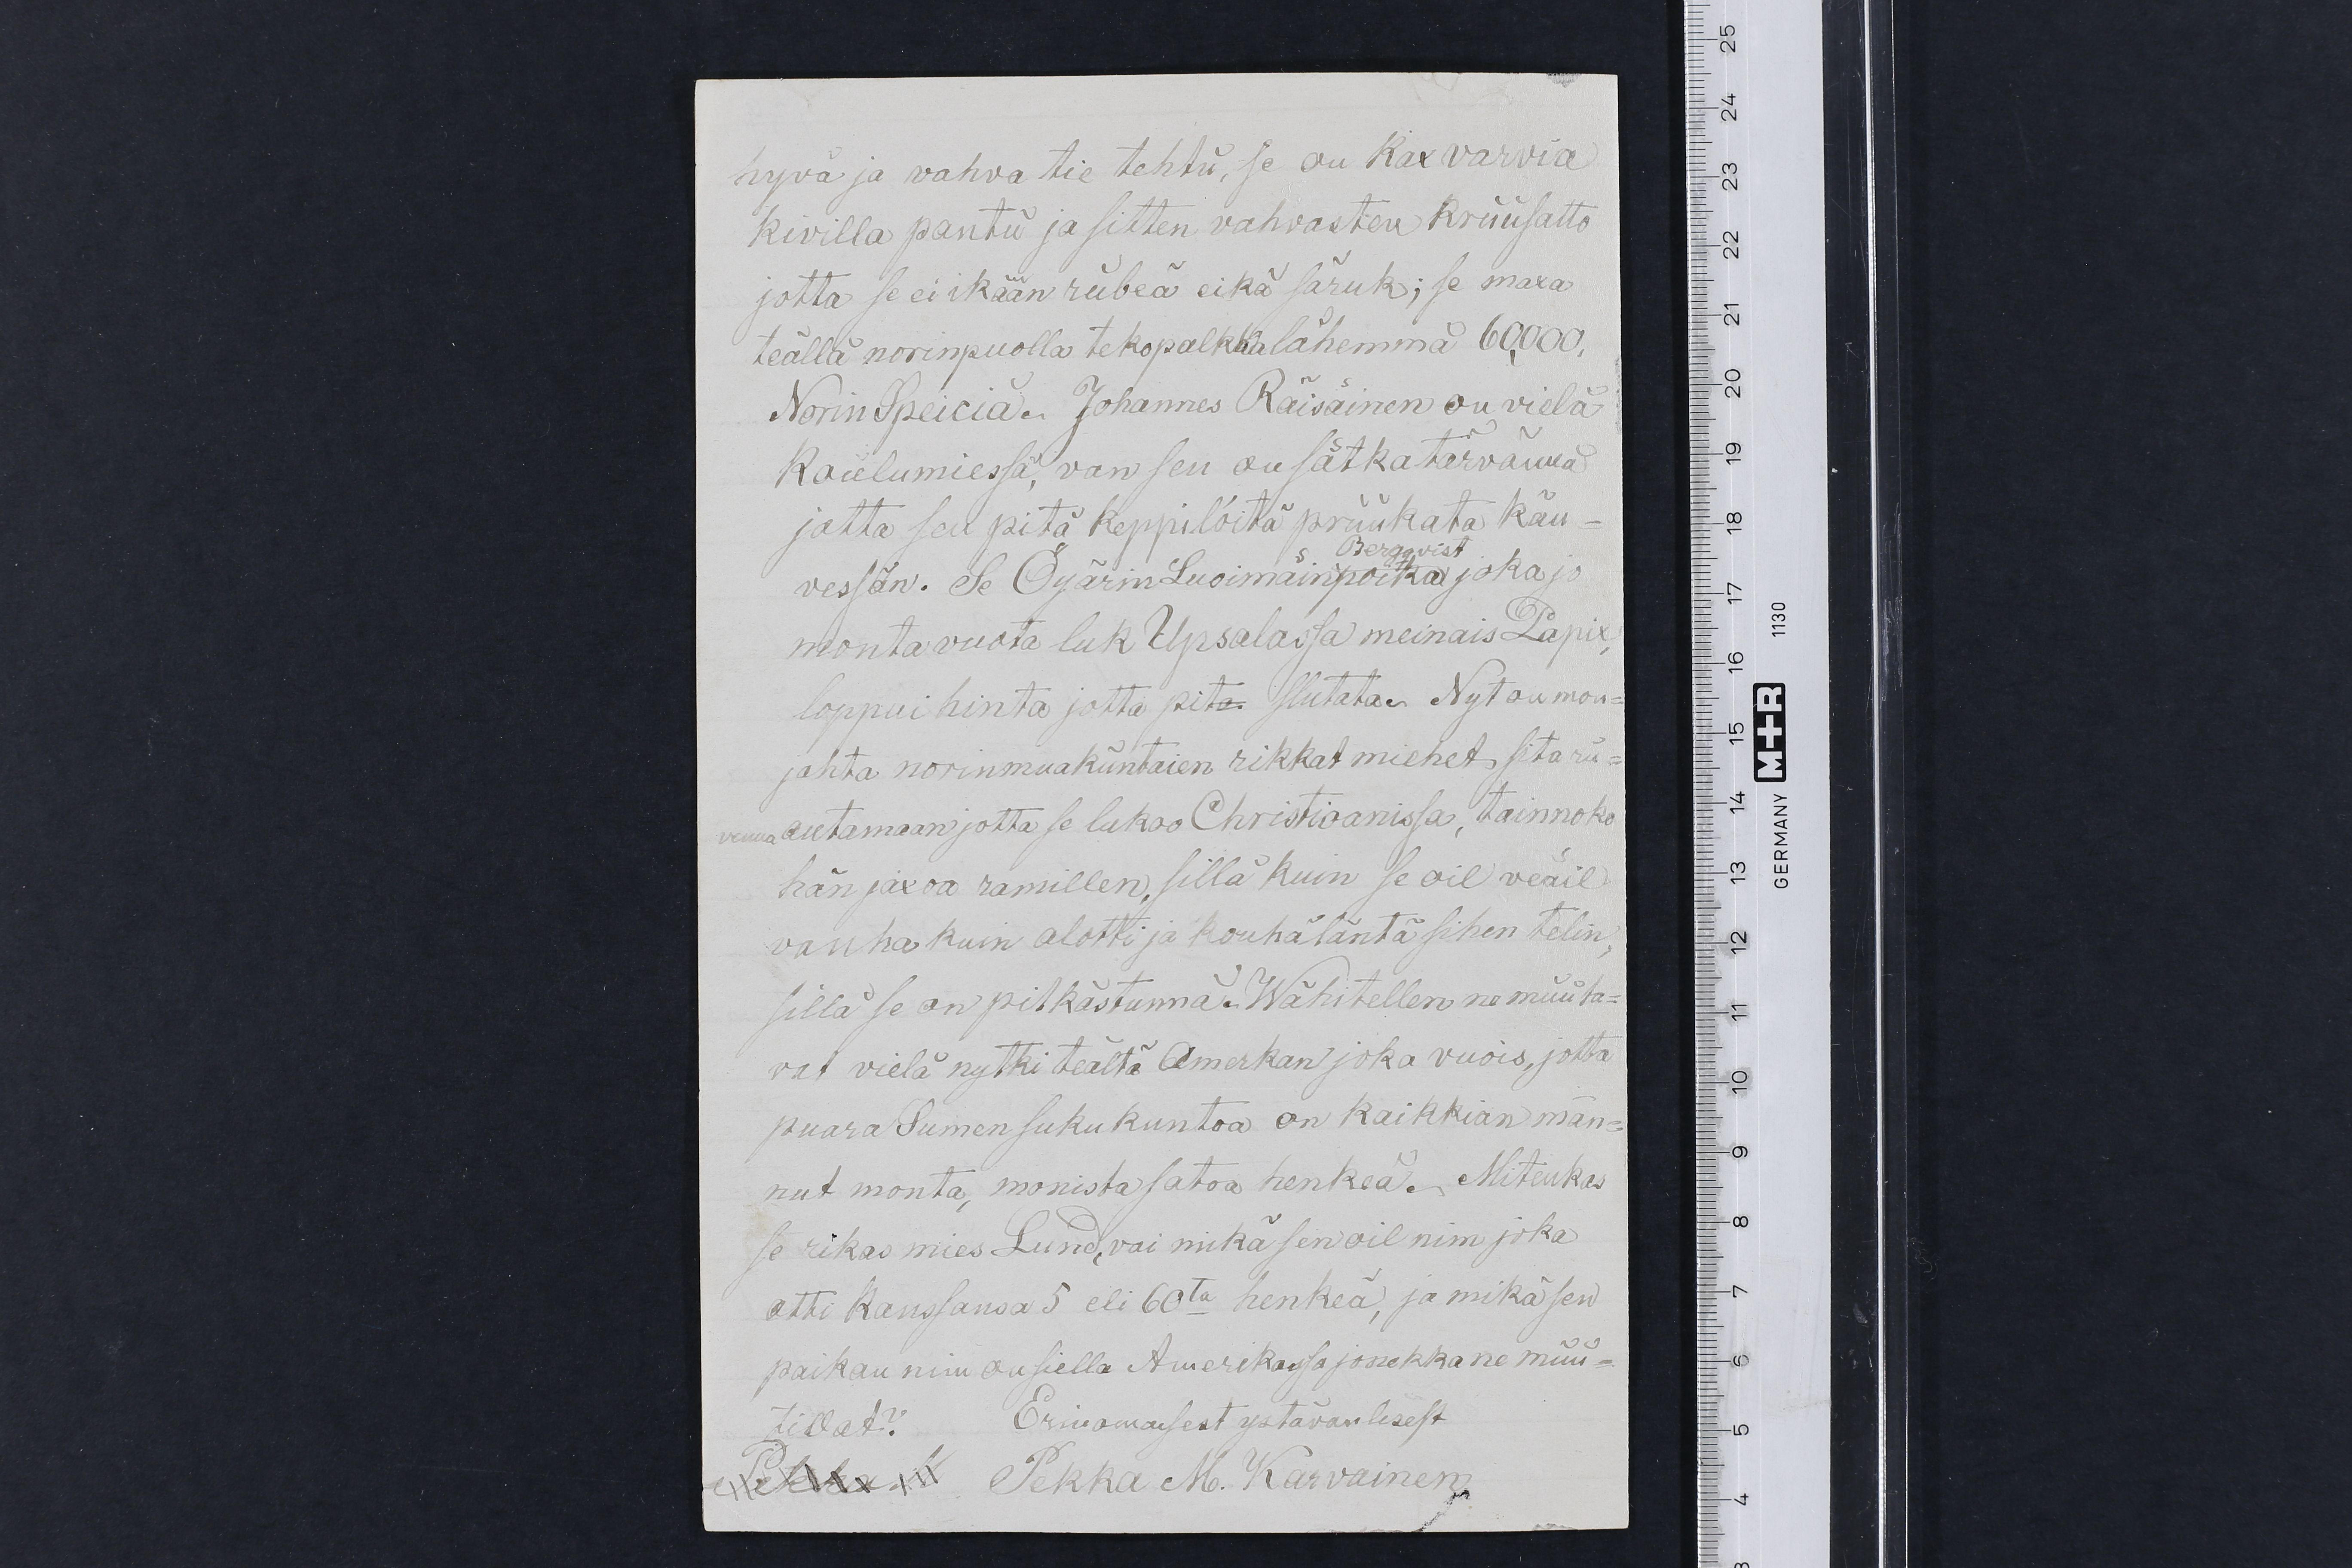 hyvä ja vahva tie tehtŭ, se ou Kax varvia
kivilla pantŭ ja sitten vahvasten krŭŭsatto
jotta se ei ikään rŭbeä eikä särŭk; se maxa
teällä norinpuolla tekopalkkalähemmä 60,000,
Norin Speiciä. Johannes Räisäinen ou vielä
Kaŭelumiessä, van sen ou sätkatärvännä
jotta sen pitä keppilöitä prŭŭkata käu-
Bergqvist
vessän. Se Öyärin Luoimäinpoika joka jo
monta vuota luk Upsalassa meinais Papix,
loppui hinta jotta pita. slŭtata. Nyt ou mon=
jahta norinmuakŭntaien rikkat miehet, sita rŭ=
venna aŭtamaan jotta se lukoo Christioanissa, tainnoko
hän jaxoa ramillen, sillä kuin se oil veäil
vanha kuin alotti ja kouhäläntä sihen telin,
sillä se on pitkästŭnnä. Wähitellen ne mŭŭta=
vat vielä nytki teältä Amerkan joka vuois, jotta
puara Sumen suku kuntoa on kaikkian män=
nut monta, monista satoa henkeä. Miteukas
se rikas mies Lund, vai mikä sen oil nim joka
otti kanssansa 5 eli 60ta henkeä, ja mikä sen
paikau nim ou siellä Amerikassa jonekka ne mŭŭ=
tillat? Erinomaisest ystävänlisest
Pekka M. Karvainen